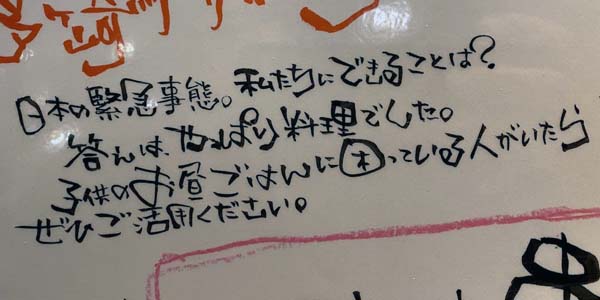 日本の緊急事態。私たちにできることは?
答えは、やっぱり料理でした。
子供のお昼ごはんに困っている人がいたら
ぜひご活用ください。